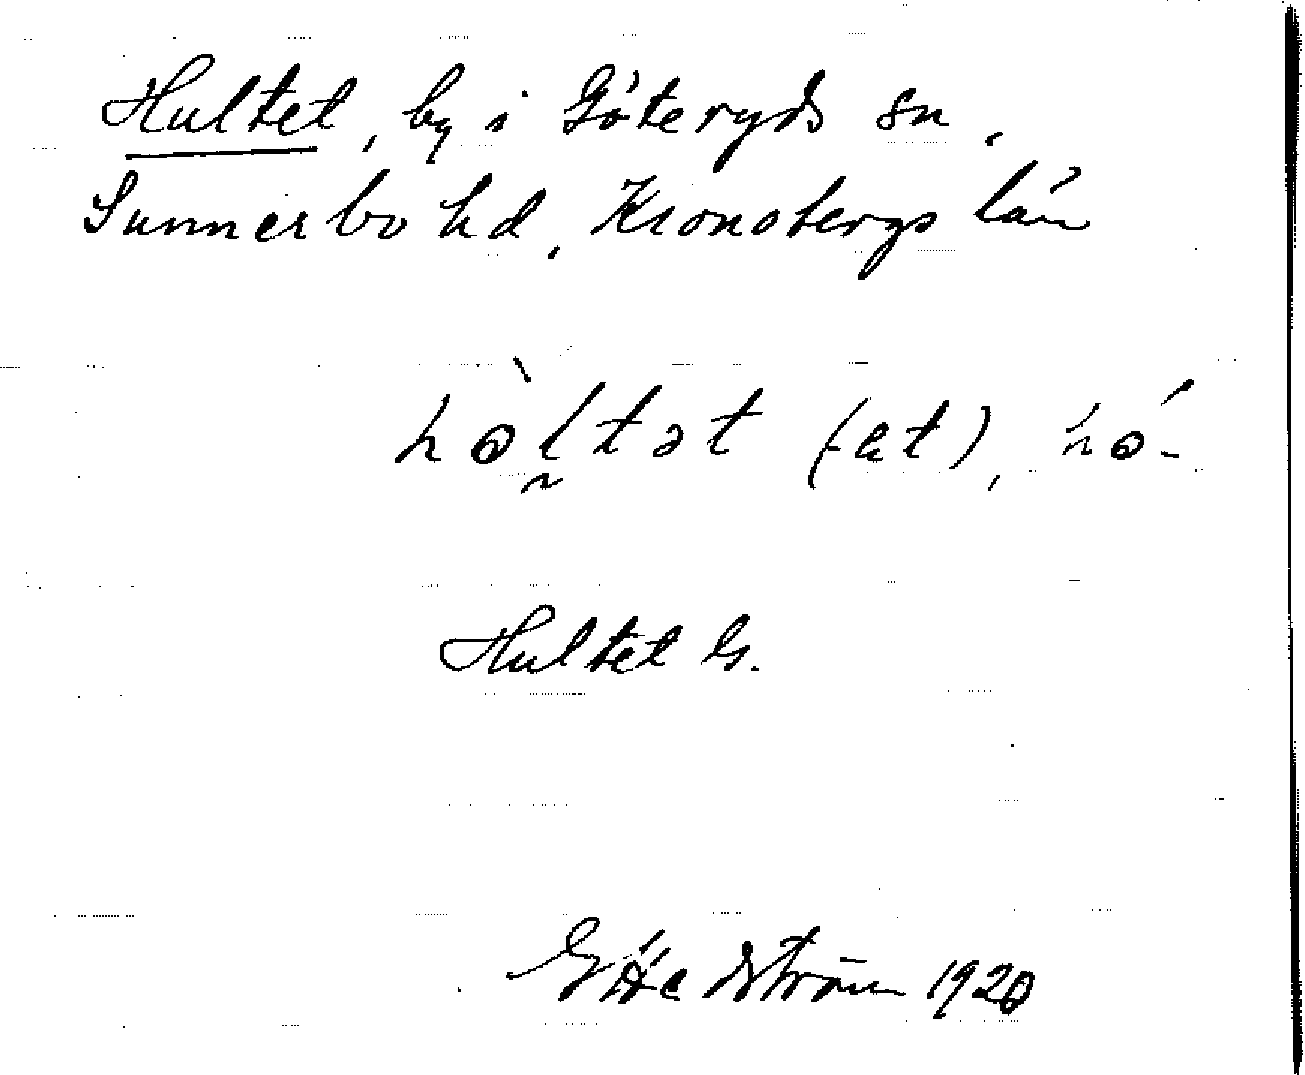 Hultet, by i Göteryds sn,
Sunnerbo hd, Kronobergs län
hòltət (-et), hó-
Hultet G.
1920